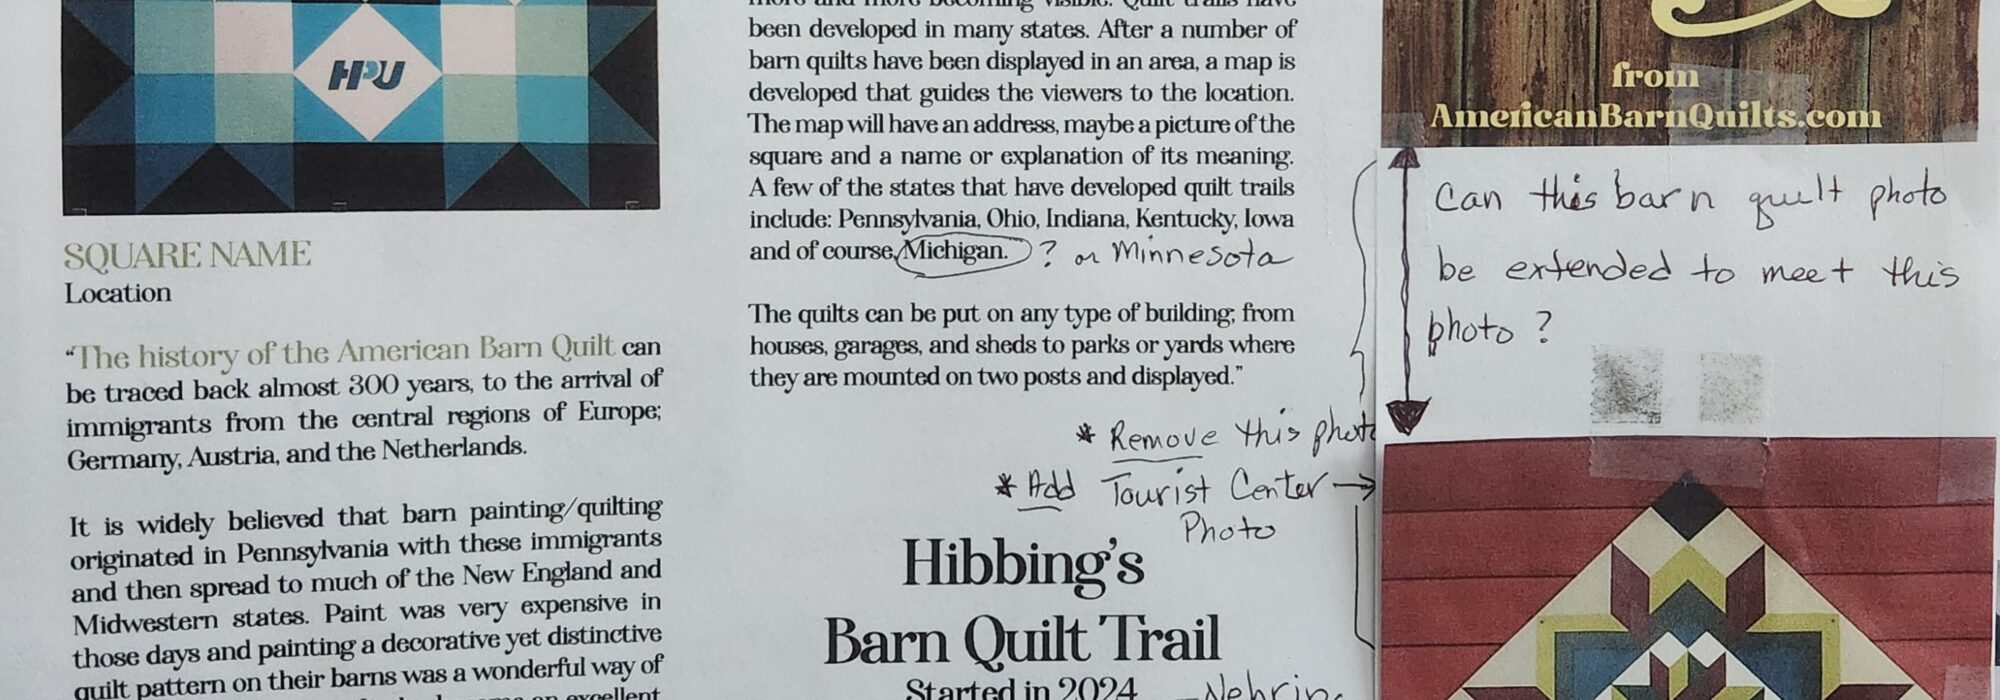 HPU
SQUARE NAME
Location
“The history of the American Barn Quilt can
be traced back almost 300 years, to the arrival of
immigrants from the central regions of Europe;
Germany, Austria, and the Netherlands.
It is widely believed that barn painting/quilting
originated in Pennsylvania with these immigrants
and then spread to much of the New England and
Midwestern states. Paint was very expensive in
those days and painting a decorative yet distinctive
quilt pattern on their barns was a wonderful way of
excellent
more and more becoming visible. Quilt trails have
been developed in many states. After a number of
barn quilts have been displayed in an area, a map is
developed that guides the viewers to the location.
The map will have an address, maybe a picture of the
square and a name or explanation of its meaning.
A few of the states that have developed quilt trails
include: Pennsylvania, Ohio, Indiana, Kentucky, Iowa
and of course, Michigan. ? or Minnesota
The quilts can be put on any type of building; from
houses, garages, and sheds to parks or yards where
they are mounted on two posts and displayed.”
* Remove this photo
* Add Tourist Center →
Photo
Hibbing’s
Barn Quilt Trail
Started in 2024 - Nehring
from
AmericanBarnQuilts.com
Can this barn quilt photo
be extended to meet this
photo?